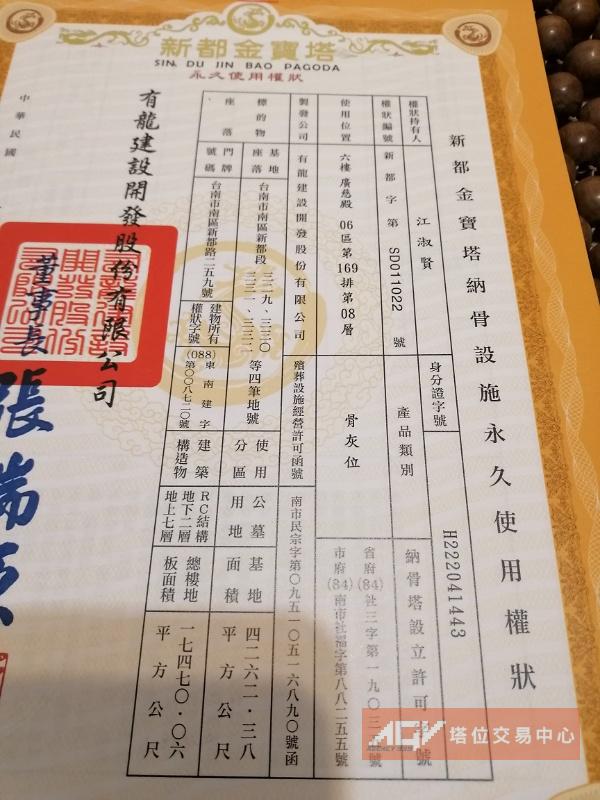 新都金寶塔
SIN DU JIN BAO PAGODA
永久使用權狀
新都金寶塔納骨設施永久使用權狀
權狀持有人
江淑賢
身分證字號
H222041443
權狀編號
新都字第 SD011022 號
產品類別
骨灰位
使用位置
六樓 廣慈殿 06區第169排第08層
納骨塔設立許可
號
省府(84)社三字第一九○三
號
市府(84)南市社福字第八八二五五號
製發公司
有龍建設開發股份有限公司
殯葬設施經營許可函號
南市民宗字第○九五一○五一六八九○號函
標的物座落
基地座落
台南市南區新都段
三二九、三三○
三三一、三三二
等四筆地號
使用分區
公墓用地
基地面積
四二六二.三八平方公尺
門牌號碼
台南市南區新都路二五九號
建物所有權狀字號
(088)東南建字
第○○八七二○號
建築構造物
RC結構
地下二層
地上七層
總樓地板面積
一七四七○.○六平方公尺
有龍建設開發股份有限公司
董事長
張瑞
中華民國
AGV 塔位交易中心